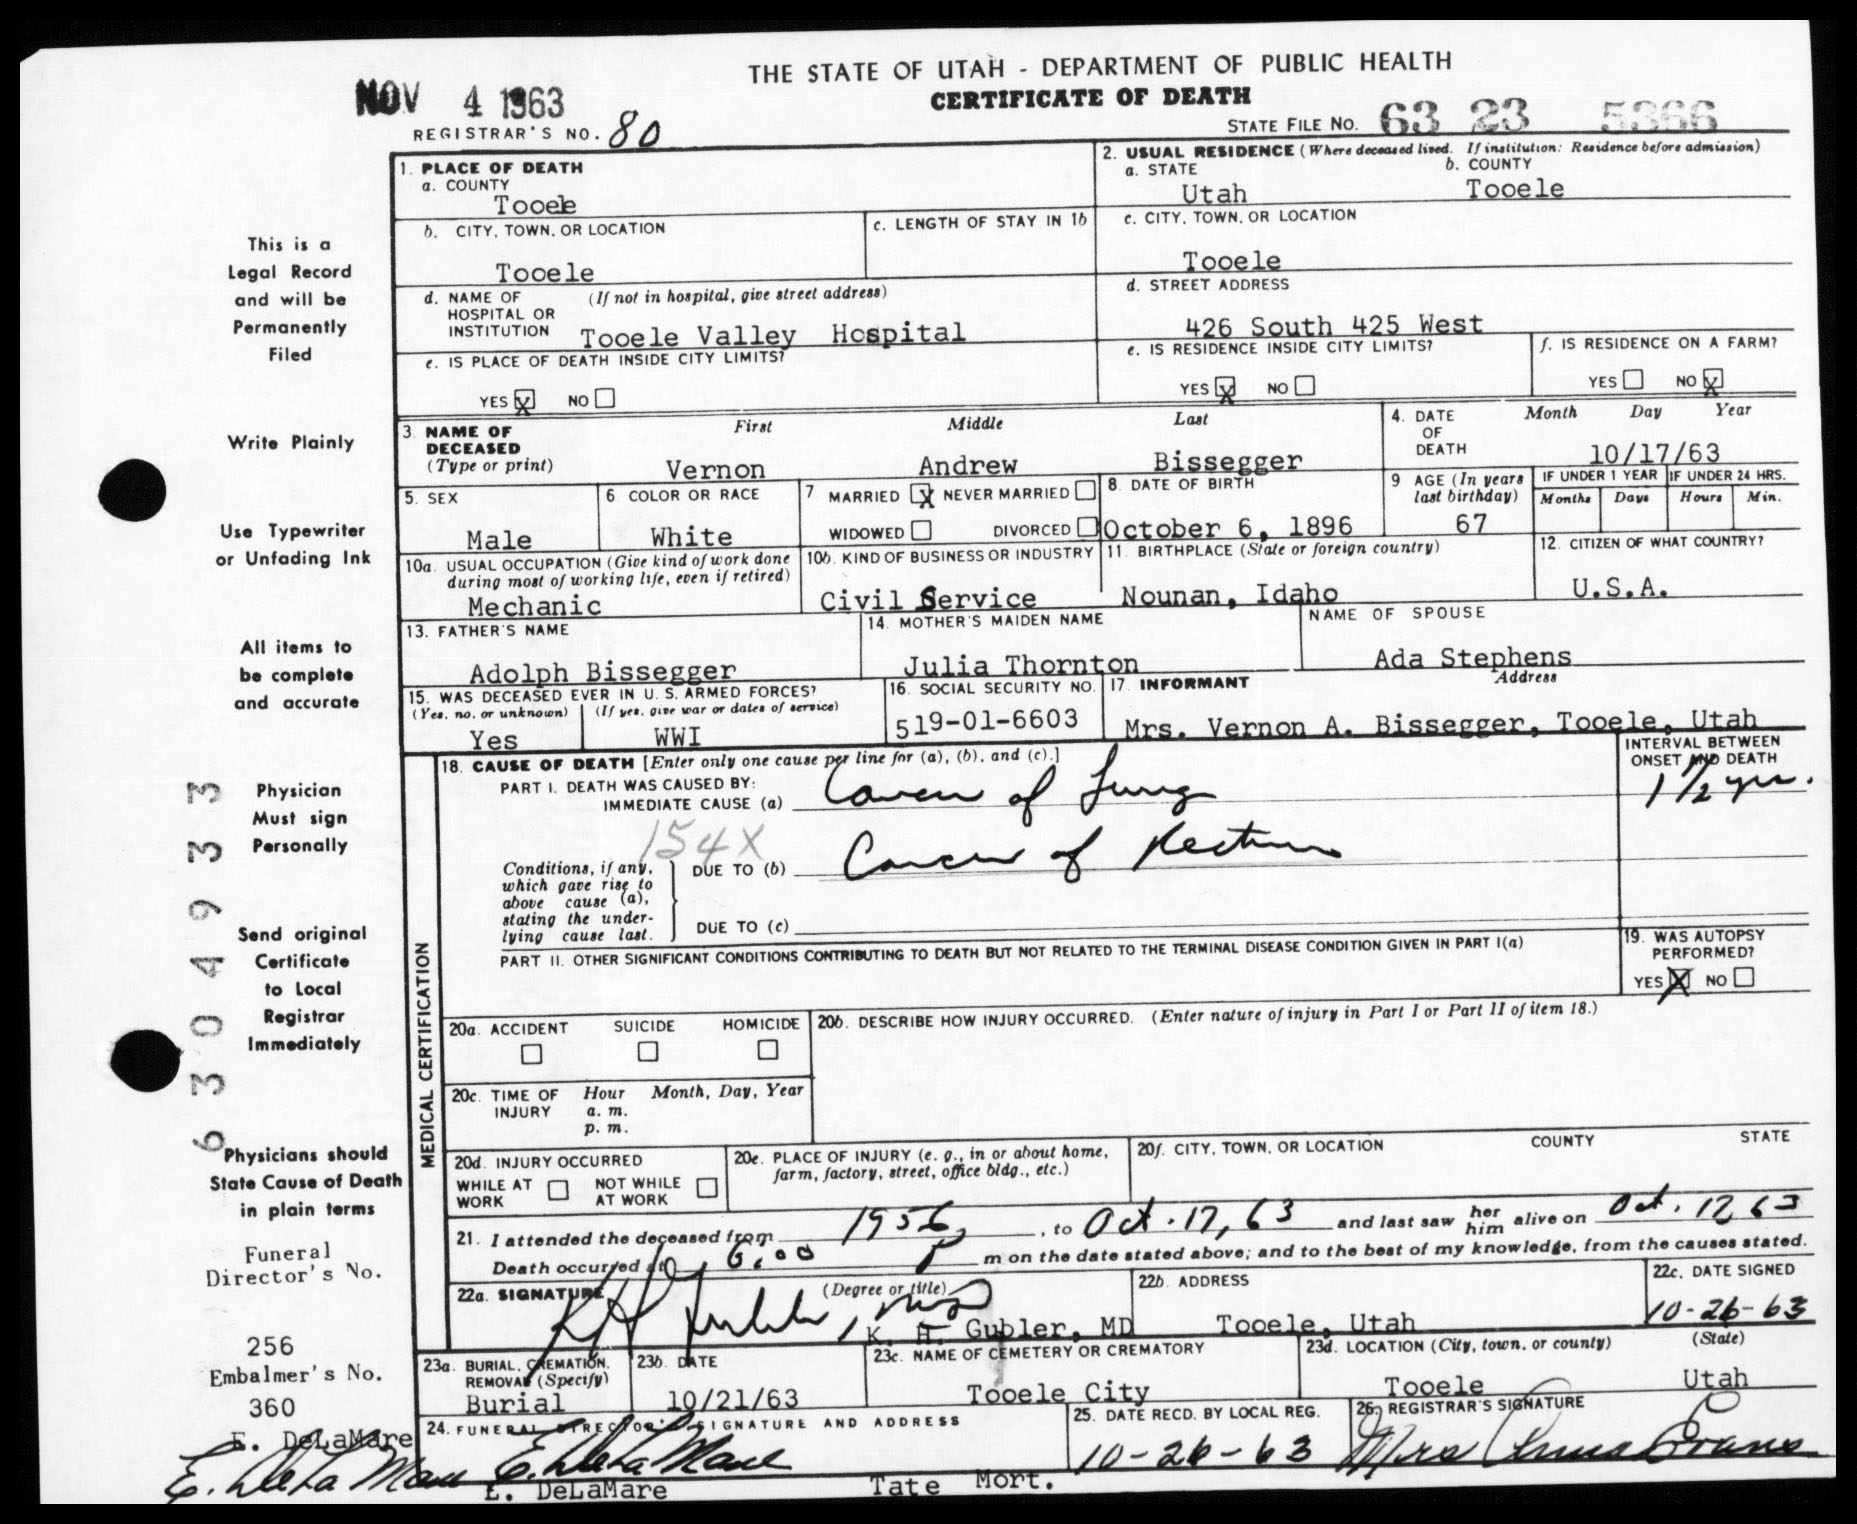 THE STATE OF UTAH - DEPARTMENT OF PUBLIC HEALTH
CERTIFICATE OF DEATH
NOV 4 1963
REGISTRAR'S NO. 80
STATE FILE NO. 63 23 5366
1. PLACE OF DEATH
a. COUNTY
Tooele
2. USUAL RESIDENCE (Where deceased lived. If institution: Residence before admission)
a. STATE b. COUNTY
Utah Tooele
b. CITY, TOWN, OR LOCATION
Tooele
c. LENGTH OF STAY IN 1b
c. CITY, TOWN, OR LOCATION
Tooele
d. NAME OF (If not in hospital, give street address)
HOSPITAL OR
INSTITUTION Tooele Valley Hospital
d. STREET ADDRESS
426 South 425 West
e. IS PLACE OF DEATH INSIDE CITY LIMITS?
YES X NO
e. IS RESIDENCE INSIDE CITY LIMITS?
YES X NO
f. IS RESIDENCE ON A FARM?
YES NO X
3. NAME OF
DECEASED
(Type or print)
First Middle Last
Vernon Andrew Bissegger
4. DATE
OF
DEATH
Month Day Year
10/17/63
5. SEX
Male
6 COLOR OR RACE
White
7 MARRIED X NEVER MARRIED
WIDOWED DIVORCED
8. DATE OF BIRTH
October 6, 1896
9 AGE (In years
last birthday)
67
IF UNDER 1 YEAR IF UNDER 24 HRS.
Months Days Hours Min.
10a. USUAL OCCUPATION (Give kind of work done
during most of working life, even if retired)
Mechanic
10b. KIND OF BUSINESS OR INDUSTRY
Civil Service
11. BIRTHPLACE (State or foreign country)
Nounan, Idaho
12. CITIZEN OF WHAT COUNTRY?
U.S.A.
13. FATHER'S NAME
Adolph Bissegger
14. MOTHER'S MAIDEN NAME
Julia Thornton
NAME OF SPOUSE
Ada Stephens
15. WAS DECEASED EVER IN U. S. ARMED FORCES?
(Yes, no, or unknown) (If yes, give war or dates of service)
Yes WWI
16. SOCIAL SECURITY NO.
519-01-6603
17. INFORMANT Address
Mrs. Vernon A. Bissegger, Tooele, Utah
MEDICAL CERTIFICATION
18. CAUSE OF DEATH [Enter only one cause per line for (a), (b), and (c).]
INTERVAL BETWEEN
ONSET AND DEATH
PART I. DEATH WAS CAUSED BY:
IMMEDIATE CAUSE (a) Cancer of Lung 1 1/2 yrs.
154X
Conditions, if any,
which gave rise to
above cause (a),
stating the under-
lying cause last.
DUE TO (b) Cancer of Rectum
DUE TO (c)
PART II. OTHER SIGNIFICANT CONDITIONS CONTRIBUTING TO DEATH BUT NOT RELATED TO THE TERMINAL DISEASE CONDITION GIVEN IN PART I(a)
19. WAS AUTOPSY
PERFORMED?
YES X NO
20a. ACCIDENT SUICIDE HOMICIDE
20b. DESCRIBE HOW INJURY OCCURRED. (Enter nature of injury in Part I or Part II of item 18.)
20c. TIME OF Hour Month, Day, Year
INJURY a. m.
p. m.
20d. INJURY OCCURRED
WHILE AT NOT WHILE
WORK AT WORK
20e. PLACE OF INJURY (e. g., in or about home,
farm, factory, street, office bldg., etc.)
20f. CITY, TOWN, OR LOCATION COUNTY STATE
21. I attended the deceased from 1956, to Oct. 17, 63 and last saw her him alive on Oct. 17 63
Death occurred at 6:00 P m on the date stated above; and to the best of my knowledge, from the causes stated.
22a. SIGNATURE (Degree or title)
KH Gubler, MD
K. H. Gubler, MD
22b. ADDRESS
Tooele, Utah
22c. DATE SIGNED
10-26-63
23a. BURIAL, CREMATION,
REMOVAL (Specify)
Burial
23b. DATE
10/21/63
23c. NAME OF CEMETERY OR CREMATORY
Tooele City
23d. LOCATION (City, town, or county) (State)
Tooele Utah
24. FUNERAL DIRECTOR'S SIGNATURE AND ADDRESS
E. DeLaMare
E. DeLaMare Tate Mort.
25. DATE RECD. BY LOCAL REG.
10-26-63
26. REGISTRAR'S SIGNATURE
Mrs Evans
This is a
Legal Record
and will be
Permanently
Filed
Write Plainly
Use Typewriter
or Unfading Ink
All items to
be complete
and accurate
Physician
Must sign
Personally
Send original
Certificate
to Local
Registrar
Immediately
Physicians should
State Cause of Death
in plain terms
Funeral
Director's No.
256
Embalmer's No.
360
E. DeLaMare
E. DeLaMare
63049333